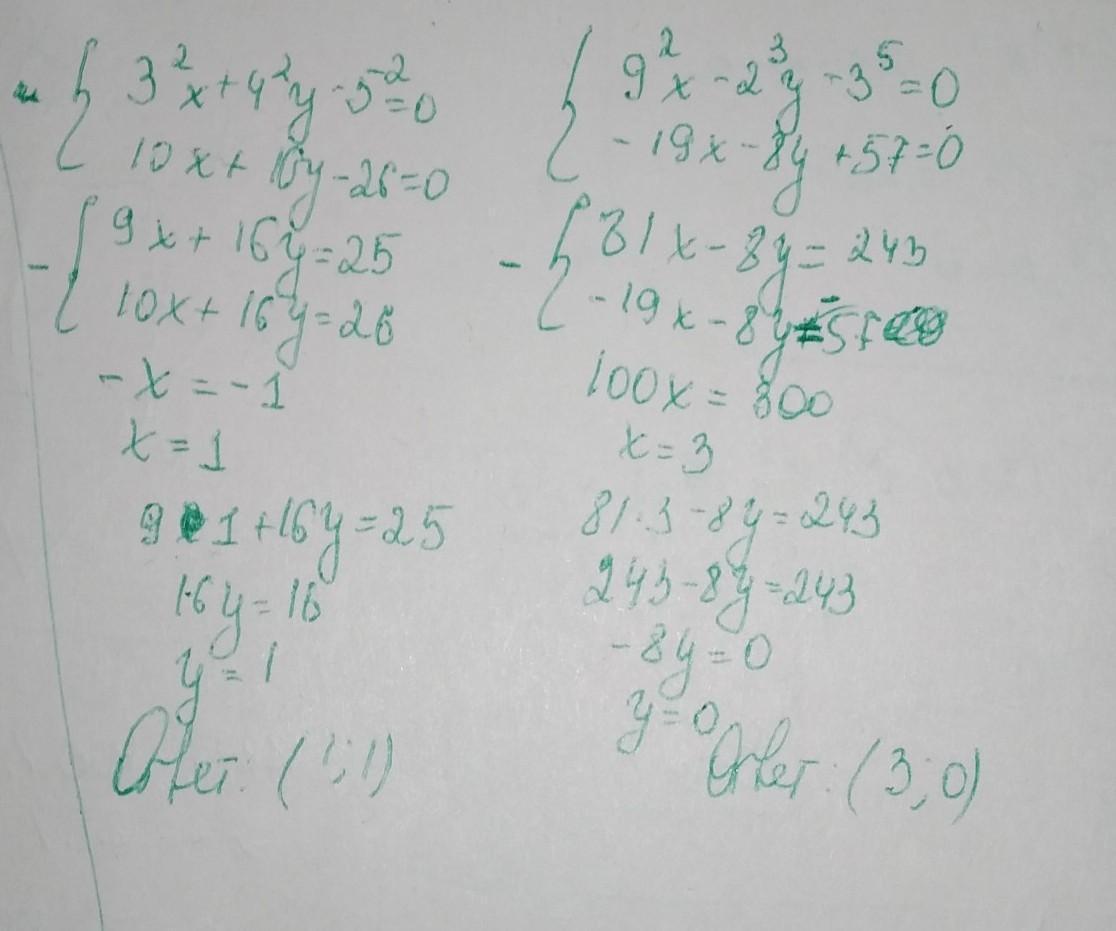 3²x+4²y-5²=0
10x+16y-26=0
- 9x+16y=25
10x+16y=26
-x=-1
x=1
9·1+16y=25
16y=16
y=1
Ответ: (1;1)
9²x-2³y-3⁵=0
-19x-8y+57=0
- 81x-8y=243
-19x-8y=-57
100x=300
x=3
81·3-8y=243
243-8y=243
-8y=0
y=0
Ответ: (3;0)